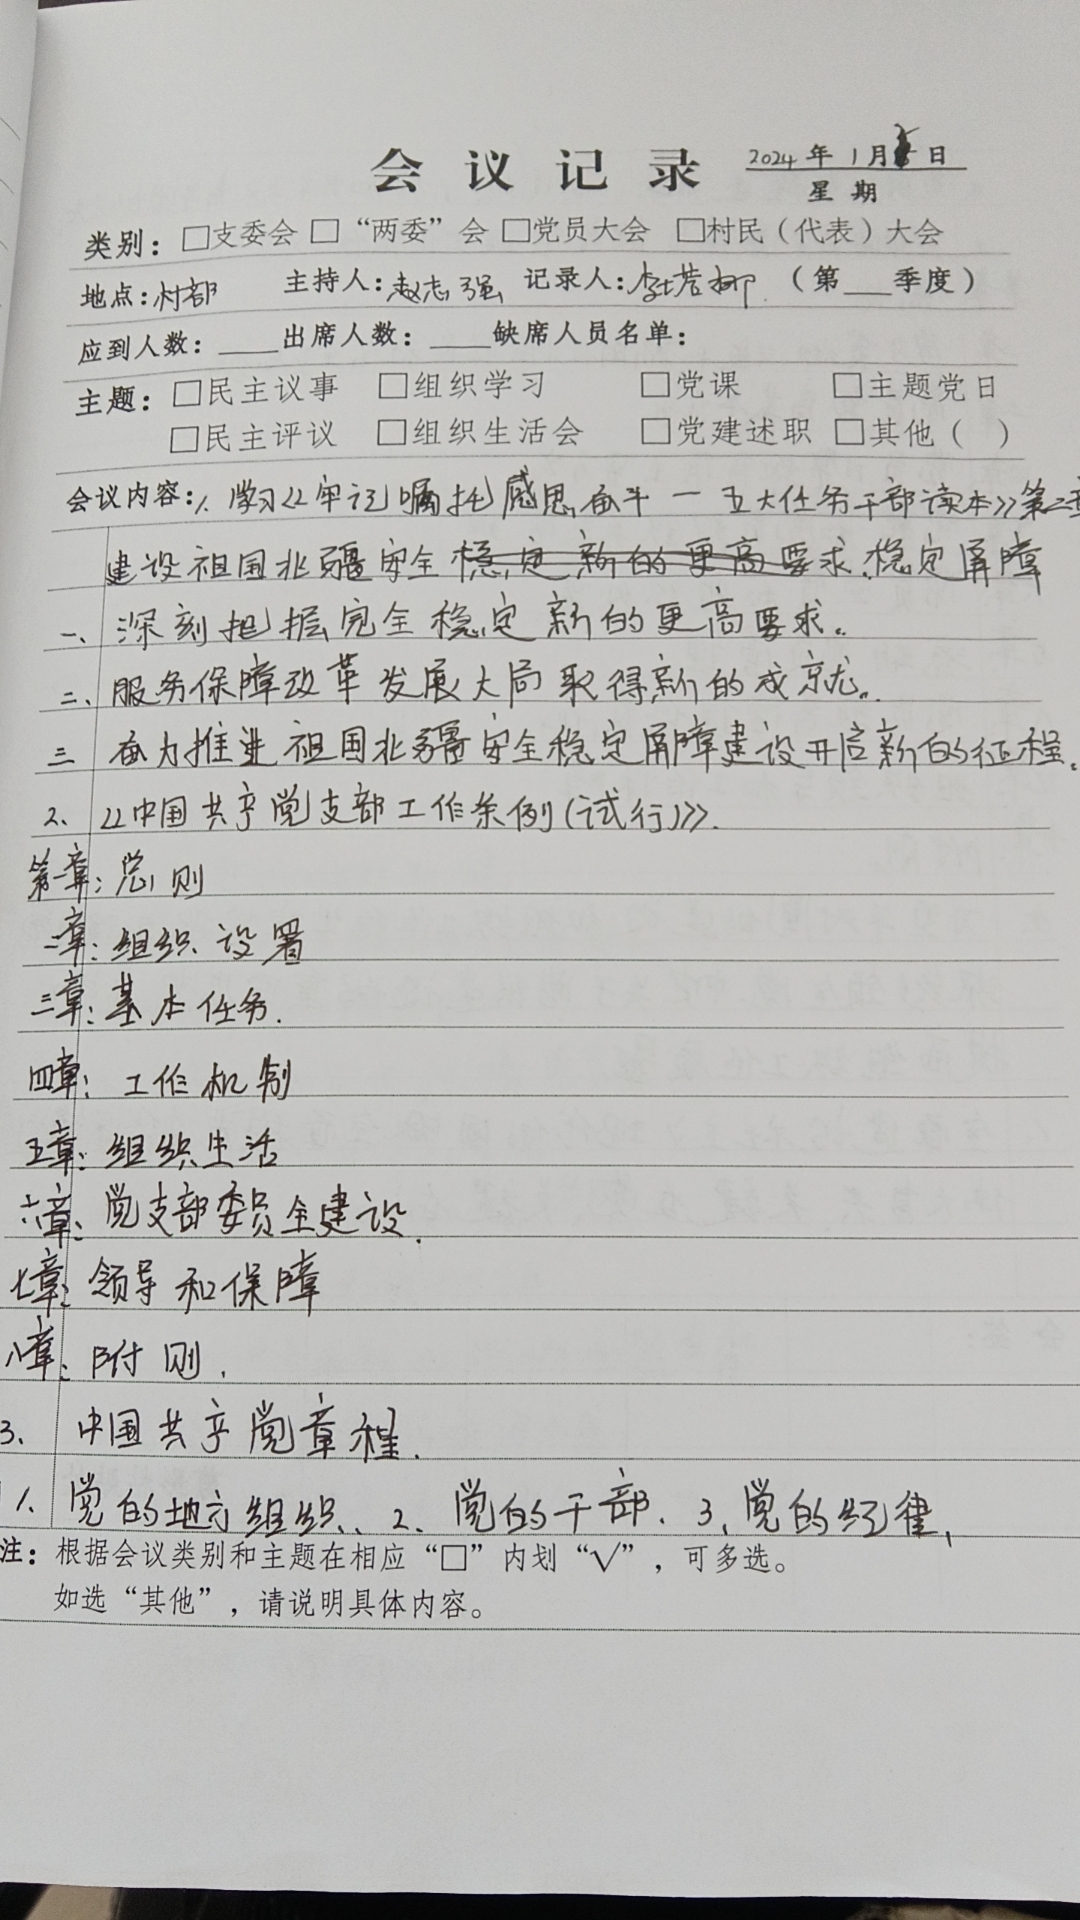 会议记录 2024年1月 日
星期
类别：□支委会 □“两委”会 □党员大会 □村民（代表）大会
地点：村部 主持人：赵志强 记录人：李芳柳（第___季度）
应到人数：____出席人数：____缺席人员名单：
主题：□民主议事 □组织学习 □党课 □主题党日
□民主评议 □组织生活会 □党建述职 □其他（ ）
会议内容：1、学习《牢记嘱托感恩奋斗—五大任务干部读本》第二章
建设祖国北疆安全稳定新的更高要求.稳定屏障
一、深刻把握完全稳定新的更高要求。
二、服务保障改革发展大局取得新的成就。
三 奋力推进祖国北疆安全稳定屏障建设开启新的征程。
2、《中国共产党支部工作条例(试行)》.
第一章：总则
二章：组织设署
三章：基本任务.
四章：工作机制
五章：组织生活
六章：党支部委员全建设.
七章：领导和保障
八章：附则.
3、中国共产党章程.
1、党的地方组织、2、党的干部.3、党的纪律、
注：根据会议类别和主题在相应“□”内划“√”，可多选。
如选“其他”，请说明具体内容。